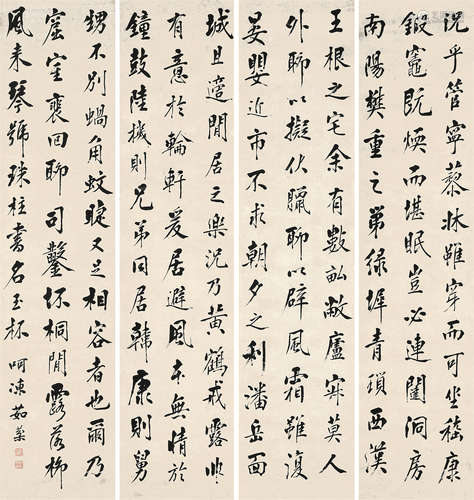 況乎管寧藜牀雖穿而可坐嵇康
鍛竈既煗而堪眠豈必連闥洞房
南陽樊重之弟綠墀青瑣西漢
王根之宅余有數畝敝廬寂莫人
外聊以擬伏臘聊以辟風霜雖復
晏嬰近市不求朝夕之利潘岳面
城且適閒居之樂況乃黃鶴戒露非
有意於輪軒爰居避風本無情於
鐘鼓陸機則兄弟同居韓康則舅
甥不別蝸角蚊睫又足相容者也爾乃
窟室裵回聊同鑿坏桐閒露落柳
風來琴號珠柱書名玉杯 呵凍茹棻